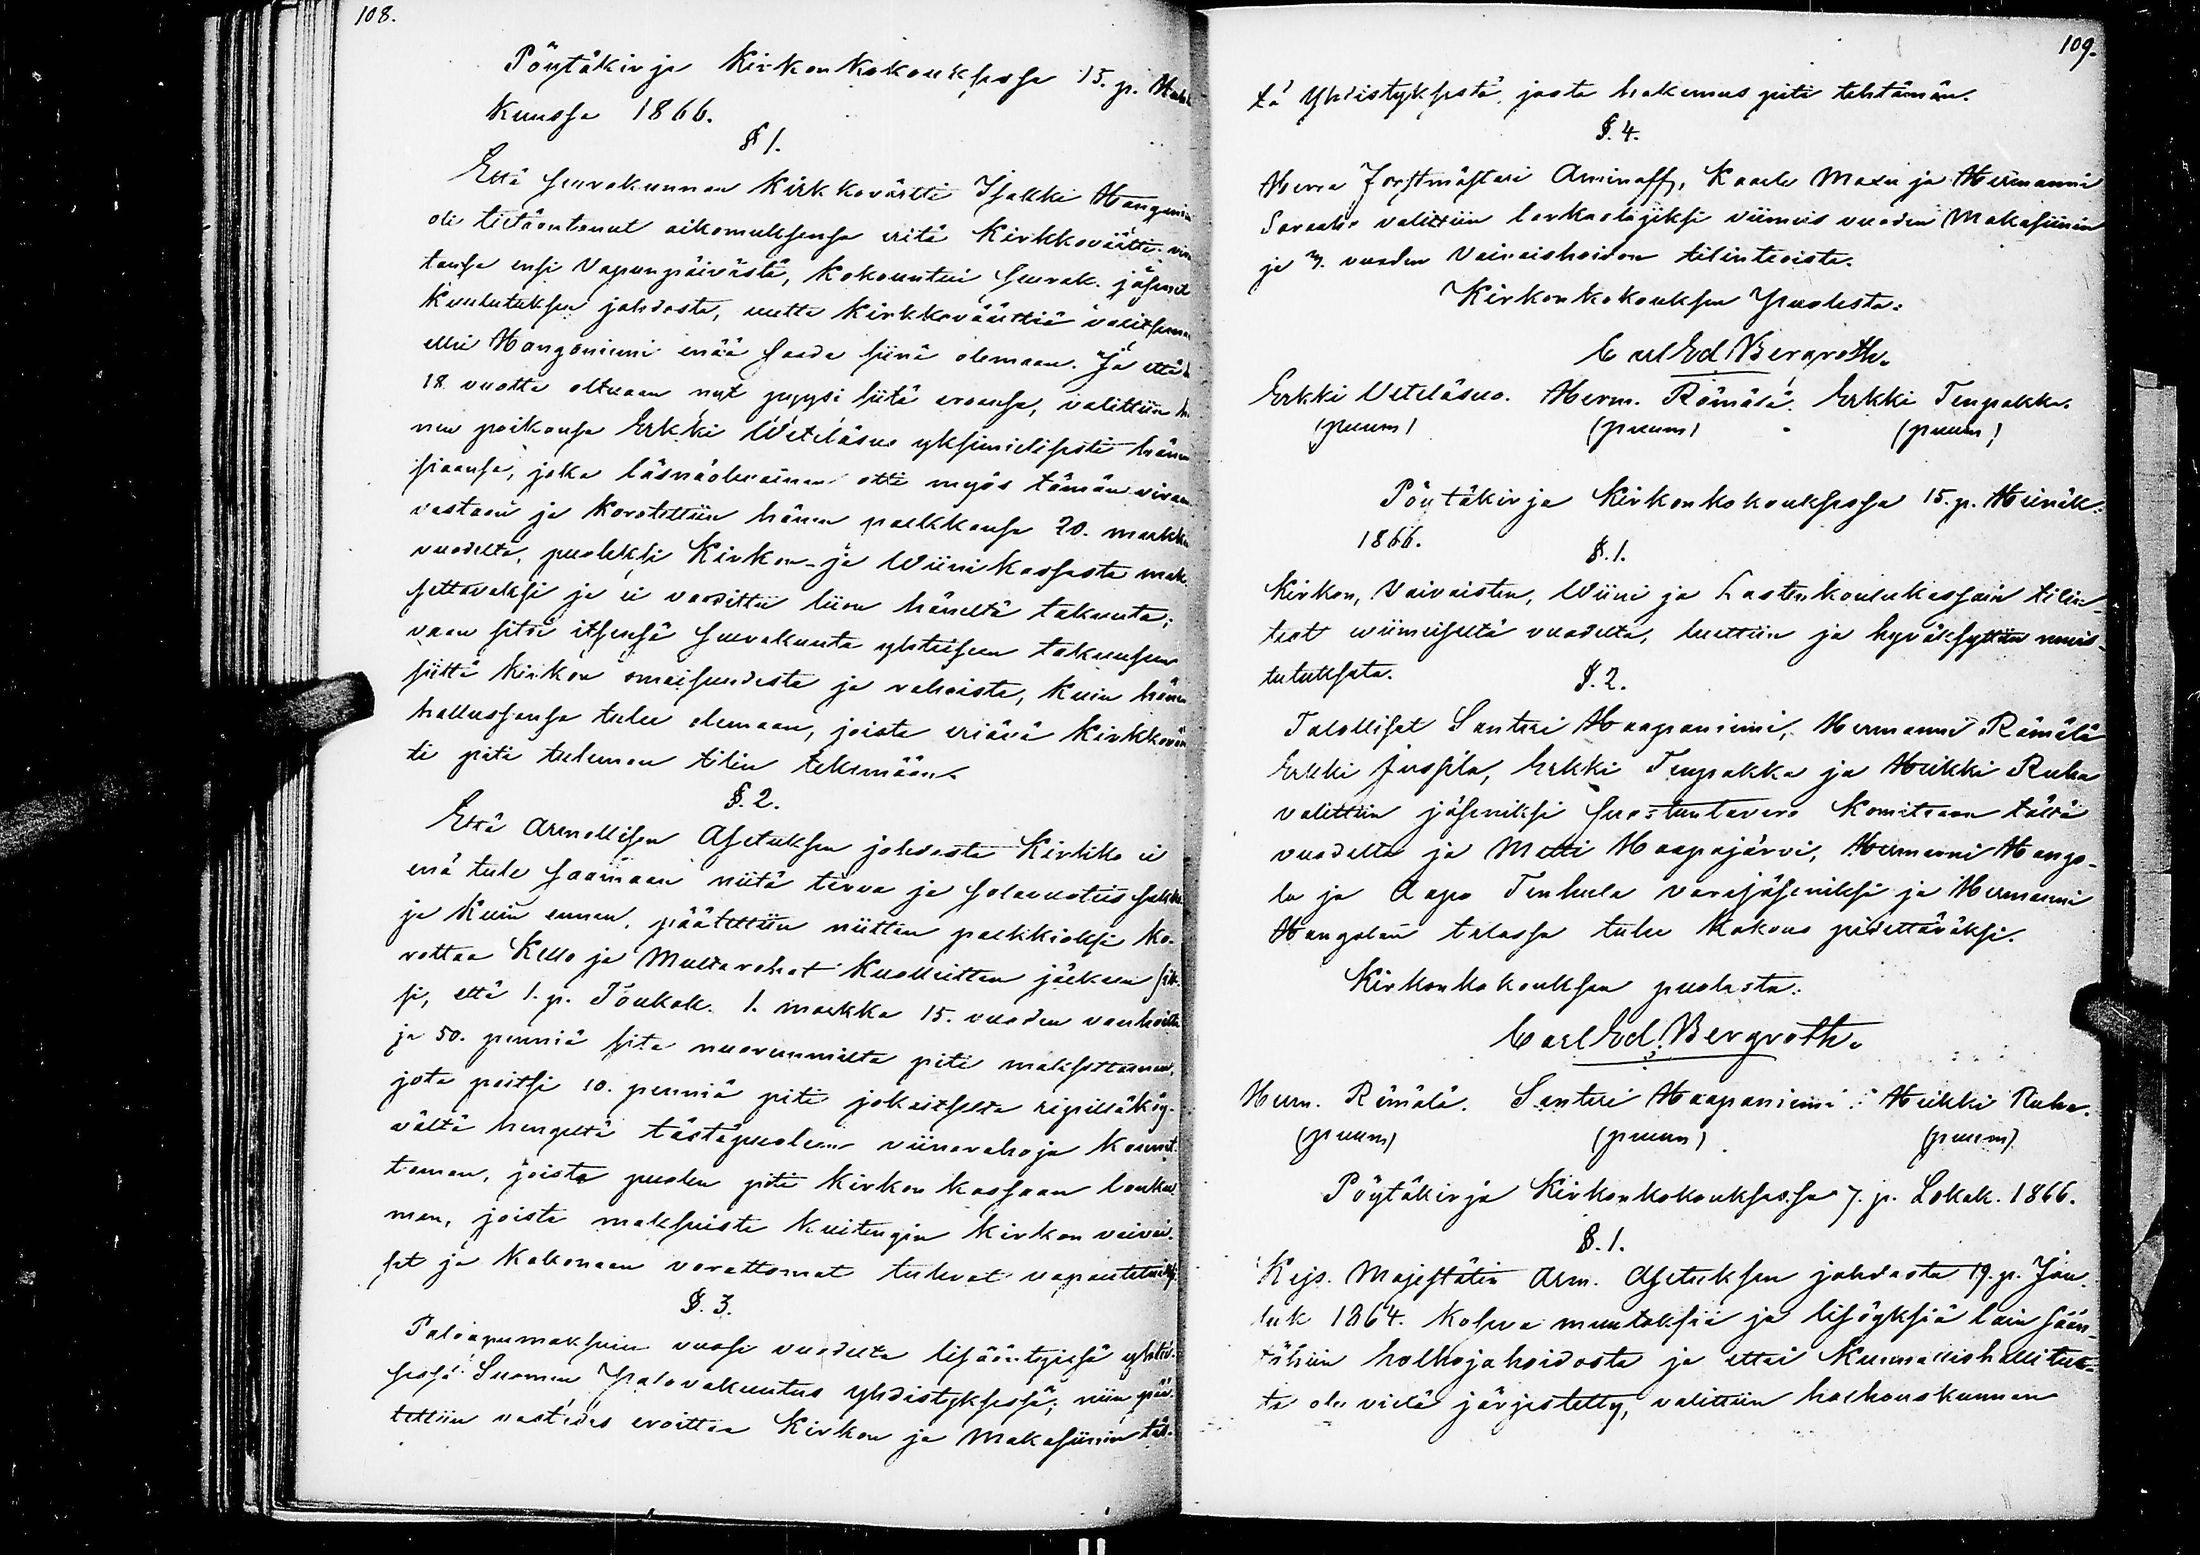 108.
Pöytäkirja Kirkonkokouksessa 15. p.
kuussa 1866.
§ 1.
Että seurakunnan Kirkkovärtti Isakki
oli tiettäväntanut aikomuksensa eritä Kirkkoväärti
tansa ensi Vapunpäivästä, kokoontui seurak. jäsenet
kuulutuksen johdosta, uutta Kirkkovääntiä
ellei Hangoniemi enää saada siinä olemaan. Ja että
18 vuotta oltuaan nyt pyysi siitä eroansa, valittiin
nen poikansa Erkki Weteläsuo yksimielisesti hänen
siaansa, joka läsnäolevainen otti myös tämän viran
vastaan ja korotettiin hänen palkkansa 20. markka
vuodelta, puoleksi Kirkon- ja Wiinikassasta mak
settavaksi ja ei vaadittu liion häneltä takausta;
vaan sitoi itsensä seurakunta yhteiseen takaukseen
siittä Kirkon omaisuudesta ja rahoista, kuin hänen
hallussansa tulee olemaan, joista eriävä Kirkkovär
ti piti tuleman tilin tekemään.
§. 2.
Että Armollisen Asetuksen johdosta Kirkko ei
enä tule saamaan niitä terva ja salavuoteus
ja kuin ennen, päätettiin niitten palkkioksi ko-
rottaa Kello ja Multarahat kuolleitten jälkeen
si, että 1. p. Toukok. 1. markka 15. vuoden vanhoilta
ja 50. penniä sitä nuoremmilta piti maksettaman,
jota paitsi 10. penniä piti jokaitselta ripilläkäy-
vältä hengeltä tästäpuoleen viinarahoja koonnut
taman, joista puolen piti Kirkon kassaan
man, joista maksuista kuitengin Kirkon vaivai-
set ja kokonaan varattomat tulevat
§. 3.
Paloapumaksuin vuosi vuodelta lisääntyissä
sessä Suomen Palovakuutus yhdistyksessä; niin pää-
tettiin vastedes eroittaa Kirkon ja Makasiinin täs-
109.
tä Yhdistyksestä, josta hakemus piti tehtämän.
§. 4.
Herra Forstmästari Aminoff, Kaarle Matu ja Hermanni
Saraste valittiin tarkastajiksi viimeis vuoden Makasiinin
ja 3. vuoden Vaivaishoidon tilinteoista.
Kirkonkokouksen Puolesta:
Carl Ed Bergroth.
Erkki Veteläsuo. Herm. Römälä. Erkki Tenpakka.
(puum) (puum) (puum)
Pöytäkirja Kirkonkokouksessa 15. p. Heinäk.
1866.
§. 1.
Kirkon, Vaivaisten, Wiini ja Lastenkoulukassain tilin-
teot wiimeiseltä vuodelta, luettiin ja hyväksyttiin muis-
tutuksata.
§. 2.
Talolliset Santeri Haapaniemi, Hermanni Rämälä
Erkki Jussila, Erkki Tenpakka ja Heikki Ruha
valittiin jäseniksi Suostuntavero Komiteaan tältä
vuodelta ja Matti Haapajärvi, Hermanni Hango-
la ja Aapo Tenhula varajäseniksi ja Hermanni
Hangolan talossa tulee Kokous pidettäväksi.
Kirkonkokouksen puolesta:
Carl Ed. Bergroth.
Herm. Rämälä. Santeri Haapaniemi. Heikki Ruha.
(puum) (puum) (puum)
Pöytäkirja Kirkonkokouksessa 7. p. Lokak. 1866.
§. 1.
Keis. Majestätin Arm. Asetuksen johdosta 19. p. Jou-
luk 1864. koskeva muutoksia ja lisäyksiä lain sään-
töhin holhojahoidosta ja ettei Kunnallishallitus-
ta ole vielä järjestetty, valittiin holhouskunnan